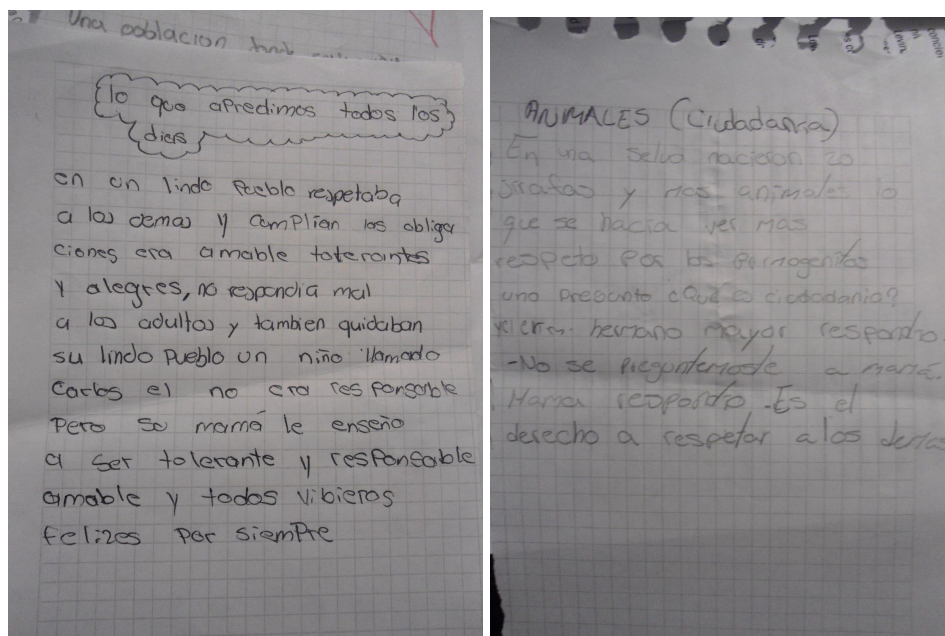 Una poblacion
lo que apredimos todos los
dias
en un lindo Pueblo respetaba
a los demas y complian las obliga
ciones era amable tolerantes
y alegres, no respondia mal
a los adultos y tambien quidaban
su lindo Pueblo un niño llamado
Carlos el no era responsable
Pero su mamá le enseño
a ser tolerante y responsable
amable y todos vibieros
felizes por siempre
ANIMALES (Ciudadania)
En una selva nacieron 20
jirafas y mas animales lo
que se hacia ver mas
respeto por los
uno pregunto ¿Que es ciudadania?
hermano mayor respondio
-No se preguntemosle a mamá.
Mama respondio -Es el
derecho a respetar a los demas